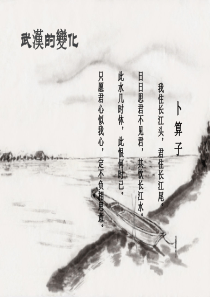 武漢的變化
卜算子
我住长江头，君住长江尾。
日日思君不见君，共饮长江水。
此水几时休，此恨何时已。
只愿君心似我心，定不负相思意。